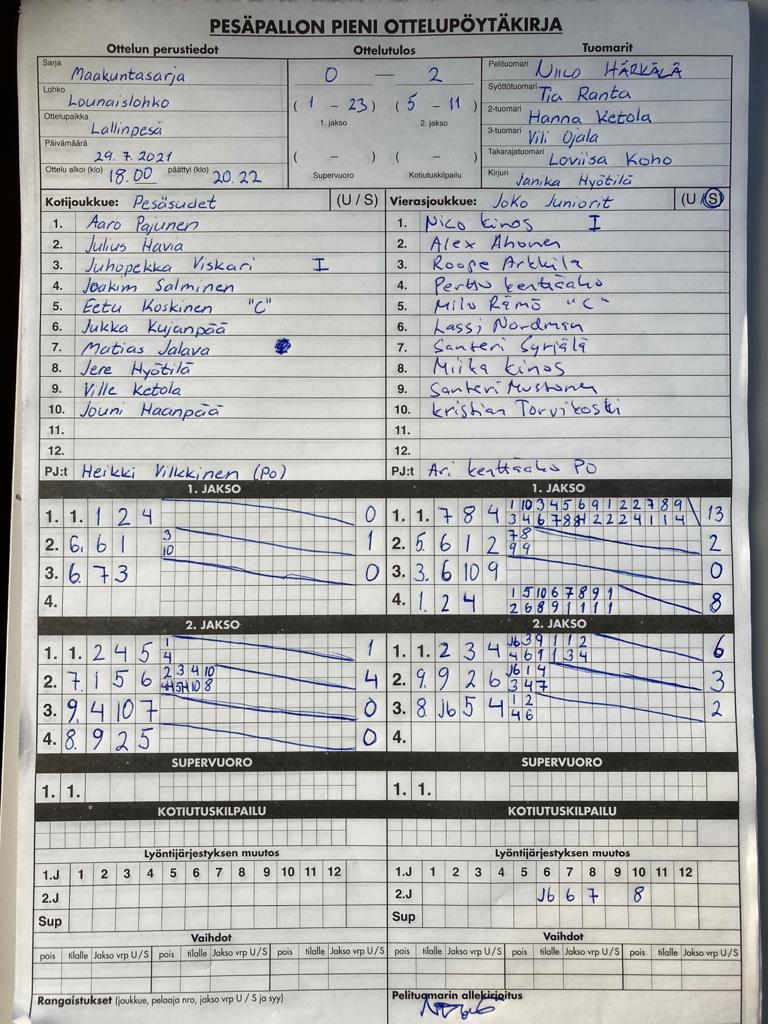 PESÄPALLON PIENI OTTELUPÖYTÄKIRJA
Ottelun perustiedot
Ottelutulos
Tuomarit
Sarja Maakuntasarja
Lohko Lounaislohko
Ottelupaikka Lallinpesä
Päivämäärä 29.7.2021
Ottelu alkoi (klo) 18.00 päättyi (klo) 20.22
0 — 2
( 1 - 23 ) ( 5 - 11 )
1. jakso 2. jakso
( - ) ( - )
Supervuoro Kotiutuskilpailu
Pelituomari Niilo HÄRKÄLÄ
Syöttötuomari Tia Ranta
2-tuomari Hanna Ketola
3-tuomari Vili Ojala
Takarajatuomari Loviisa Koho
Kirjuri Janika Hyötilä
Kotijoukkue: Pesäsudet (U / S)
1. Aaro Pajunen
2. Julius Havia
3. Juhopekka Viskari I
4. Joakim Salminen
5. Eetu Koskinen "C"
6. Jukka Kujanpää
7. Matias Jalava
8. Jere Hyötilä
9. Ville Ketola
10. Jouni Haanpää
11.
12.
PJ:t Heikki Vilkkinen (PO)
Vierasjoukkue: Joko Juniorit (U / S)
1. Nico Kinos I
2. Alex Ahonen
3. Roope Arkkila
4. Perttu Kenttäaho
5. Milo Rämö "C"
6. Lassi Nordman
7. Santeri Syrjälä
8. Miika Kinos
9. Santeri Mustonen
10. Kristian Torvikoski
11.
12.
PJ:t Ari Kenttäaho PO
1. JAKSO
1. 1. 1 2 4 0
2. 6. 6 1 3 1
10
3. 6. 7 3 0
4.
1. JAKSO
1. 1. 7 8 4 1 10 3 4 5 6 9 1 2 2 7 8 9 13
2. 5. 6 1 2 7 8 2
9 9
3. 3. 6 10 9 0
4. 1. 2 4 1 5 10 6 7 8 9 1 8
2 6 8 9 1 1 1 1
2. JAKSO
1. 1. 2 4 5 1 1
4
2. 7. 1 5 6 2 3 4 10 4
3. 9. 4 10 7 0
4. 8. 9 2 5 0
2. JAKSO
1. 1. 2 3 4 J6 3 9 1 1 2 6
4 6 1 1 3 4
2. 9. 9 2 6 J6 1 4 3
3 4 7
3. 8. J6 5 4 1 2 2
4 6
4.
SUPERVUORO
1. 1.
SUPERVUORO
1. 1.
KOTIUTUSKILPAILU
KOTIUTUSKILPAILU
Lyöntijärjestyksen muutos
1.J 1 2 3 4 5 6 7 8 9 10 11 12
2.J
Sup
Lyöntijärjestyksen muutos
1.J 1 2 3 4 5 6 7 8 9 10 11 12
2.J J6 6 7 8
Sup
Vaihdot
pois tilalle Jakso vrp U/S pois tilalle Jakso vrp U/S
Vaihdot
pois tilalle Jakso vrp U/S pois tilalle Jakso vrp U/S
Rangaistukset (joukkue, pelaaja nro, jakso vrp U / S ja syy)
Pelituomarin allekirjoitus